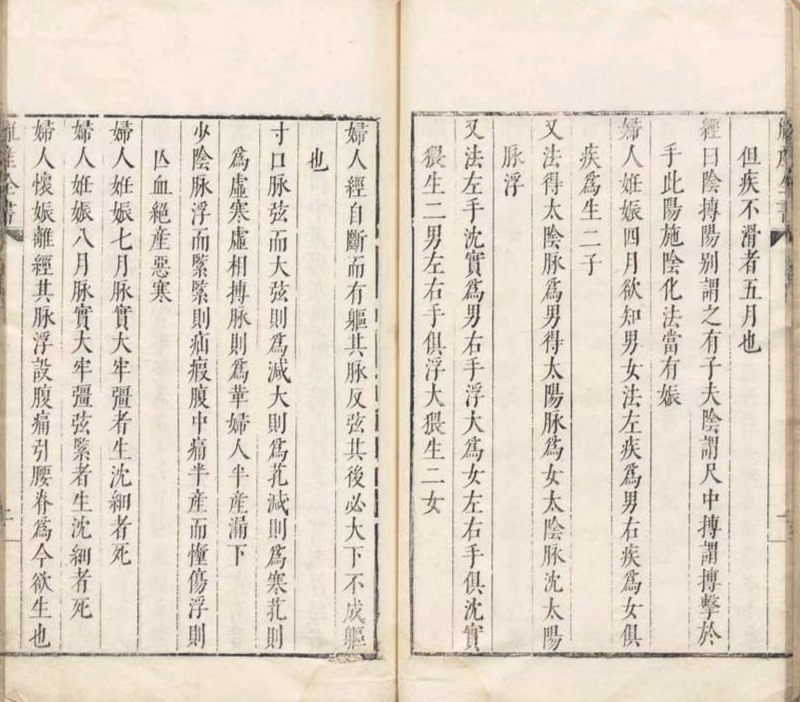 但疾不滑者五月也
經曰陰搏陽别謂之有子夫陰謂尺中搏謂搏擊於
手此陽施陰化法當有娠
婦人姙娠四月欲知男女法左疾爲男右疾爲女俱
疾爲生二子
又法得太陰脉爲男得太陽脉爲女太陰脉沈太陽
脉浮
又法左手沈實爲男右手浮大爲女左右手俱沈實
猥生二男左右手俱浮大猥生二女
婦人經自斷而有軀其脉反弦其後必大下不成軀
也
寸口脉弦而大弦則爲減大則爲芤減則爲寒芤則
爲虚寒虚相搏脉則爲革婦人半産漏下
少陰脉浮而緊緊則疝瘕腹中痛半産而憧傷浮則
亾血絕産惡寒
婦人姙娠七月脉實大牢彊者生沈細者死
婦人姙娠八月脉實大牢彊弦緊者生沈細者死
婦人懷娠離經其脉浮設腹痛引腰脊爲今欲生也